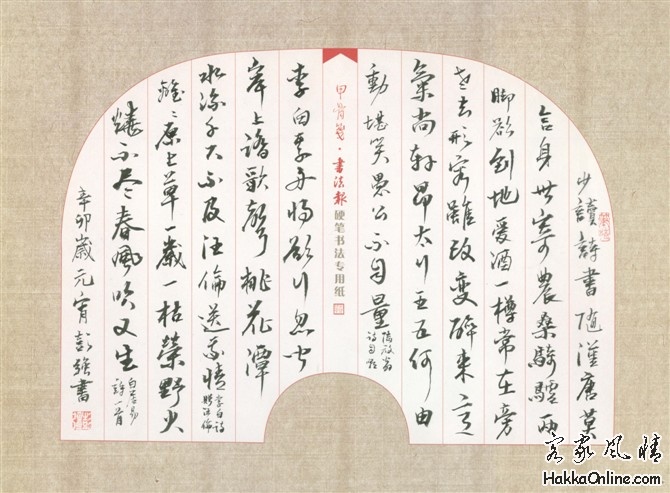 少讀詩書隨漢唐莫
言身世寄農桑騎驢兩
脚欲到地愛酒一樽常在旁
老去形容雖改變醉来意
氣尚軒昂太行王五何由
動堪笑愚公不自量
陆放翁
甲骨箋·書法報 硬笔书法专用纸
李白乘舟將欲行忽聞
岸上踏歌聲桃花潭
水深千尺不及汪倫送我情
李白詩
贈汪倫
離離原上草一歲一枯榮野火
燒不尽春風吹又生
白居易
詩一首
辛卯歲元宵彭强書
客家風情
HakkaOnline.com